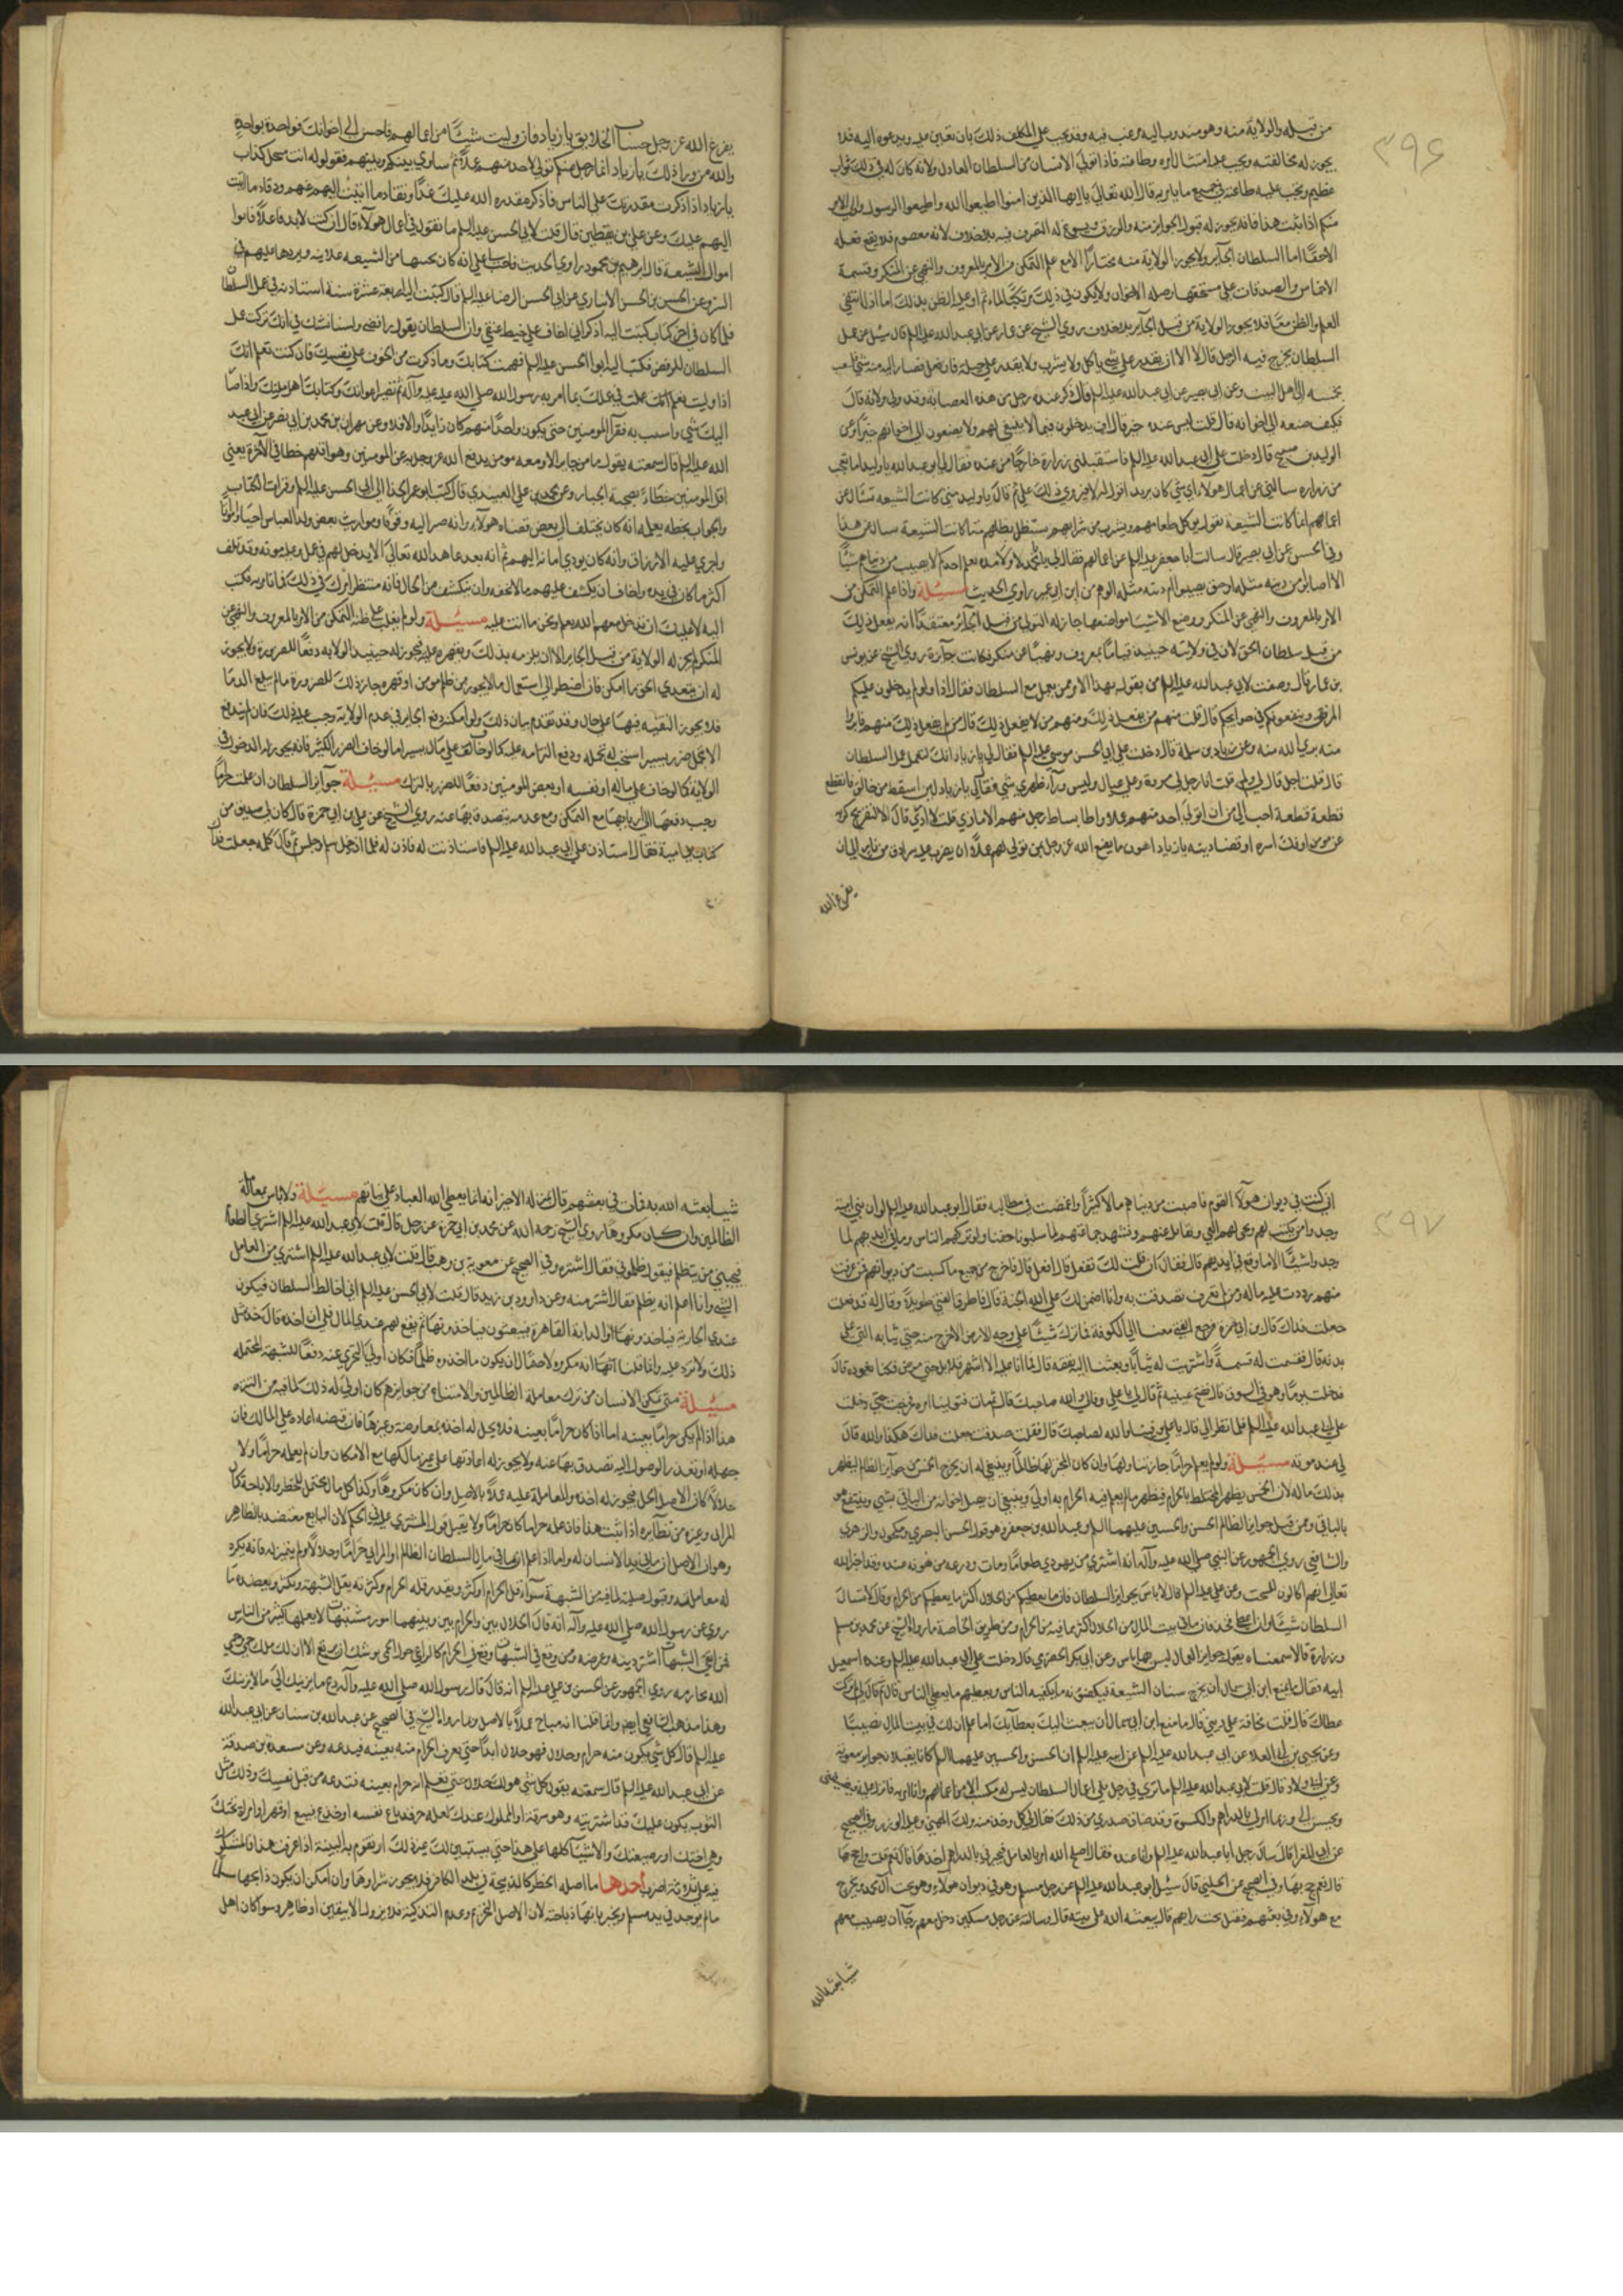 ٣٩۶
من قبله والولاية منه وهو مندوب اليه مرغب فيه وقد يجب على المكلف ذلك بان تعين عليه ويدعوه اليه فلا
يجوز له مخالفته ويجب عليه امتثال امره وطاعته فاذا تولى الانسان من السلطان العادل ولاية كان له في ذلك ثواب
عظيم ويجب عليه طاعته في جميع ما يامر به قال الله تعالى يا ايها الذين امنوا اطيعوا الله واطيعوا الرسول واولي الامر
منكم اذا ثبت هذا فانه يجوز له قبول الجوايز منه والرزق ويسوغ له التصرف فيه بلا خلاف لانه معصوم فلا يقع فعله
الا حقا اما السلطان الجاير ولا يجوز الولاية منه مختارا الا مع علم التمكن من الامر بالمعروف والنهي عن المنكر وقسمة
الاخماس والصدقات على مستحقها وصلة الاخوان ولا يكون في ذلك مرتكبا لماثم او غلبة الظن بذلك اما اذا انتفى
العلم والظن معا فلا يجوز الولاية من قبل الجاير بلا خلاف روى الشيخ عن عمار عن ابي عبد الله عليه السلم قال سئل عن عمل
السلطان يخرج فيه الرجل قال لا الا ان يقدر على شي ياكل ولا يشرب ولا يقدر على حيلة فان فعل فصار اليه منه شي فليبعث
بخمسه الى اهل البيت وعن ابي بصير عن ابي عبد الله عليه السلم قال ذكر عنده رجل من هذه العصابة وقد ولي ولاية قال
فكيف صنعه الى اخوانه قال قلت ليس عنده خير قال اف يدخلون فيما لا ينبغي لهم ولا يصنعون الى اخوانهم خيرا وعن
الوليد بن صبيح قال دخلت على ابي عبد الله عليه السلم فاستقبلني زرارة خارجا من عنده فقال لي ابو عبد الله يا وليد اما تعجب
من زرارة سالني عن اعمال هولاء اي شي كان يريد اقول له لا فيروي ذلك علي ثم قال يا وليد متى كانت الشيعة تسال عن
اعمالهم انما كانت الشيعة تقول يوكل طعامهم ويشرب من شرابهم ويستظل بظلهم متى كانت الشيعة تسال عن هذا
وفي الحسن عن ابي بصير قال سالت ابا جعفر عليه السلم عن اعمالهم فقال لي يا با محمد لا ولا مدة بقلم ان احدكم لا يصيب من دنياهم شيئا
الا اصابوا من دينه مثله او حتى يصيبوا من دينه مثله الوهم من ابن ابي عمير راوي الحديث مسيلة واذا علم التمكن من
الامر بالمعروف والنهي عن المنكر ووضع الاشيا مواضعها جاز له التولي من قبل الجاير معتقدا انه يفعل ذلك
من قبل سلطان الحق لان في ولايته حينيذ قياما بمعروف ونهيا عن منكر فكانت جايزة روى الشيخ عن يونس
بن عمار قال وصفت لابي عبد الله عليه السلم من يقول بهذا الامر ممن يعمل مع السلطان فقال اذا ولوكم يدخلون عليكم
المرفق وينفعونكم في حوايجكم قال قلت منهم من يفعل ذلك ومنهم من لا يفعل ذلك قال من لم يفعل ذلك منهم فابروا
منه بري الله منه وعن زياد بن سلمة قال دخلت على ابي الحسن موسى عليه السلم فقال لي يا زياد انك لتعمل عمل السلطان
قال قلت اجل قال لي ولم قلت انا رجل لي مروة وعلي عيال وليس وراء ظهري شي فقال لي يا زياد لين اسقط من حالق فانقطع
قطعة قطعة احب الي من ان اتولى لاحد منهم عملا او اطا بساط رجل منهم الا لماذي قلت لا ادري قال الا لتفريج كربة
عن مومن او فك اسره او قضا دينه يا زياد اهون ما يصنع الله عز وجل بمن تولى لهم عملا ان يضرب عليه سرادق من نار الى ان
يفرغ الله
يفرغ الله عز وجل حساب الخلايق يا زياد فان وليت شيئا من اعمالهم فاحسن الى اخوانك فواحدة بواحدة
والله من ورا ذلك يا زياد ايما رجل منكم تولى لاحد منهم عملا ثم ساوى بينكم وبينهم فقولوا له انت منتحل كذاب
يا زياد اذا ذكرت مقدرتك على الناس فاذكر مقدرة الله عليك غدا ونفاد ما اتيت اليهم عنهم وبقا ما اتيت
اليهم عليك وعن علي بن يقطين قال قلت لابي الحسن عليه السلم ما تقول في اعمال هولاء قال ان كنت لابد فاعلا فاتق
اموال الشيعة قال ابرهيم بن محمود راوي الحديث فاخبرني علي انه كان يجبيها من الشيعة علانية ويردها عليهم في
السر وعن الحسن بن الحسين الانباري عن ابي الحسن الرضا عليه السلم قال كتبت اليه اربعة عشرة سنة استاذنه في عمل السلطان
فلما كان في اخر كتاب كتبت اليه اذكر اني اخاف على خيط عنقي وان السلطان يقول رافضي ولسنا نشك في انك تركت عمل
السلطان للرفض فكتب اليه ابو الحسن عليه السلم فهمت كتابك وما ذكرت من الخوف على نفسك فان كنت تعلم انك
اذا وليت تعلم انك عملت في عملك بما امر به رسول الله صلى الله عليه وآله ثم تصير اعوانك وكتابك اهل ملتك واذا صار
اليك شي واسيت به فقرا المومنين حتى يكون واحدا منهم كان ذا بذا والا فلا وعن مهران بن محمد بن ابي نصر عن ابي عبد
الله عليه السلم قال سمعته يقول ما من جبار الا ومعه مومن يدفع الله عز وجل به عن المومنين وهو اقلهم حظا في الاخرة يعني
اقل المومنين حظا بصحبة الجبار وعن محمد بن علي العبيدي قال كتب ابو عمر الحذا الى ابي الحسن عليه السلم وقرات الكتاب
والجواب بخطه يعلمه انه كان يختلف الى بعض قضاة هولاء وانه صير اليه وقوفا ومواريث بعض ولد العباس احيا وامواتا
واجرى عليه الارزاق وانه كان يودي امانة اليهم ثم انه بعد عاهد الله تعالى الا يدخل لهم في عمل وعليه مونة وقد تلف
اكثر ما كان في يده واخاف ان ينكشف عليهم ما لا يخفى وان ينكشف من الحال فانه منتظر امرك في ذلك فما تامر به فكتب
اليه لا عليك ان تدخل معهم الله يعلم ونحن ما انت عليه مسيلة ولو لم يغلب على ظنه التمكن من الامر بالمعروف والنهي عن
المنكر لم يجز له الولاية من قبل الجاير الا ان يلزمه بذلك ويقهره عليه فيجوز له حينيذ الولاية دفعا للضرورة ولا يجوز
له ان يتعدى الحق ما امكن فان اضطر الى استعمال ما لا يجوز من ظلم مومن او قهره جاز ذلك للضرورة ما لم يبلغ الدما
فلا يجوز التقية فيها على حال وقد تقدم بيان ذلك ولو امكنه دفع الجاير في عدم الولاية وجب عليه ذلك فان لم يندفع
الا بتحمل ضرر يسير استحب له تحمله ودفع التزامه عليه كما لو خاف على مال يسير اما لو خاف الضرر الكثير فانه يجوز له الدخول في
الولاية كما لو خاف على ماله او نفسه او بعض المومنين دفعا للضرر بالترك مسيلة جوايز السلطان ان علمت حراما
وجب دفعها الى اربابها مع التمكن ومع عدمه يتصدق بها عنه روى الشيخ عن علي بن ابي حمزة قال كان لي صديق من
كتاب بني امية فقال استاذن لي على ابي عبد الله عليه السلم فاستاذنت له فاذن له فلما ان دخل سلم وجلس ثم قال كله جعلت فداك
٣٩٧
اني كنت في ديوان هولاء القوم فاصبت من دنياهم مالا كثيرا واغمضت في مطالبه فقال ابو عبد الله عليه السلم لو ان بني امية
وجدوا من يكتب لهم ويجبي لهم الفي ويقاتل عنهم ويشهد جماعتهم لما سلبونا حقنا ولو تركهم الناس وما في ايديهم لما
وجدوا شيئا الا ما وقع في ايديهم قال فقال ان قلت لك تفعل قال افعل قال فاخرج من جميع ما كسبت من ديوانهم فمن عرفت
منهم رددت عليه ماله ومن لم تعرف تصدقت به وانا اضمن لك على الله الجنة قال فاطرق الفتى طويلا وقال له قد فعلت
جعلت فداك قال بن ابي حمزة فرجع الفتى معنا الى الكوفة فما ترك شيئا على وجه الارض الا خرج منه حتى ثيابه التي على
بدنه قال فقسمت له قسمة واشتريت له ثيابا وبعثنا اليه بنفقة قال فما اتى عليه الا اشهر قلايل حتى مرض فكنا نعوده قال
فدخلت يوما وهو في السوق قال ففتح عينيه ثم قال لي يا علي وفى لي والله صاحبك قال ثم مات فتولينا امره فخرجت حتى دخلت
على ابي عبد الله عليه السلم فلما نظر الي قال يا علي وفينا والله لصاحبك قال فقلت صدقت جعلت فداك هكذا والله قال
لي عند موته مسيلة ولو لم يعلم حراما جاز تناولها وان كان المجيز لها ظالما وينبغي له ان يخرج الخمس من جوايز الظالم ليطهر
بذلك ماله لان الخمس يطهر المختلط بالحرام فيطهر ما لم يعلم فيه الحرام به اولى وينبغي ان يصل اخوانه من الباقي بشي وينتفع هو
بالباقي وممن قبل جوايز الظالم الحسن والحسين عليهما السلم وعبد الله بن جعفر وهو قول الحسن البصري ومكحول والزهري
والشافعي روى الجمهور عن النبي صلى الله عليه وآله انه اشترى من يهودي طعاما ومات ودرعه مرهونة عنده وقد اخبر الله
تعالى انهم اكالون للسحت وعن علي عليه السلم قال لا باس بجوايز السلطان فان ما يعطيكم من الحلال اكثر مما يعطيكم من الحرام وقال لا تسال
السلطان شيئا وان اعطى فخذ فان ما في بيت المال من الحلال اكثر مما فيه من الحرام ومن طريق الخاصة ما رواه الشيخ عن محمد بن مسلم
وزرارة قالا سمعناه يقول جوايز العمال ليس بها باس وعن ابي بكر الحضرمي قال دخلت على ابي عبد الله عليه السلم وعنده اسمعيل
ابنه فقال ما يمنع ابن ابي سمال ان يخرج شباب الشيعة فيكفونه ما يكفيه الناس ويعطيهم ما يعطي الناس قال ثم قال لي لم تركت
عطاك قال قلت مخافة على ديني قال ما منع ابن ابي سمال ان يبعث اليك بعطايك اما علم ان لك في بيت المال نصيبا
وعن يحيى بن ابي العلا عن ابي عبد الله عليه السلم عن ابيه عليه السلم ان الحسن والحسين عليهما السلم كانا يقبلان جوايز معوية
وعن ابي ولاد قال قلت لابي عبد الله عليه السلم ما ترى في رجل يلي اعمال السلطان ليس له مكسب الا من اعمالهم وانا امر به فانزل عليه فيضيفني
ويحسن الي وربما امر لي بالدراهم والكسوة وقد ضاق صدري من ذلك فقال لي كل وخذ منه ولك المهنى وعليه الوزر وفي الصحيح
عن ابي المغرا قال سال رجل ابا عبد الله عليه السلم وانا عنده فقال اصلحك الله امر بالعامل فيجيزني بالدراهم اخذها قال نعم قلت واحج بها
قال نعم حج بها وفي الصحيح عن الحلبي قال سيل ابو عبد الله عليه السلم عن رجل مسلم وهو في ديوان هولاء وهو يحب آل محمد ويخرج
مع هولاء وفي بعثهم فيقتل تحت رايتهم قال يبعثه الله على نيته قال وسالته عن رجل مسكين دخل معهم رجا ان يصيب معهم
شيا يغنيه الله
شيا يغنيه الله به فمات في بعثهم قال هو بمنزلة الاجير انه انما يعطي الله العباد على نياتهم مسيلة ولا باس بمعاملة
الظالمين وان كان مكروها روى الشيخ رحمه الله عن محمد بن ابي حمزة عن رجل قال قلت لابي عبد الله عليه السلم اشتري الطعام
فيجيني من يتظلم فيقول ظلموني فقال اشتره وفي الصحيح عن معوية بن وهب قال قلت لابي عبد الله عليه السلم اشتري من العامل
الشي وانا اعلم انه يظلم فقال اشتر منه وعن داود بن رزين قال قلت لابي الحسن عليه السلم اني اخالط السلطان فيكون
عندي الجارية فياخذونها او الدابة الفارهة فيبعثون فياخذونها ثم يقع لهم عندي المال فلي ان اخذه قال خذ مثل
ذلك ولا تزد عليه وانما قلنا انها انه مكروه لاحتمال ان يكون ما اخذوه ظلما فكان اولى التحرز عنه دفعا للشبهة المحتملة
مسيلة متى تمكن الانسان من ترك معاملة الظالمين والامتناع من جوايزهم كان اولى له ذلك لما فيه من التنزه
هذا اذا لم يكن حراما بعينه اما اذا كان حراما بعينه فلا يحل له اخذه بمعاوضة وغيرها فان قبضه اعاده على المالك فان
جهله او تعذر الوصول اليه تصدق بها عنه ولا يجوز له اعادتها على غير مالكها مع الامكان وان لم يعلمه حراما ولا
حلالا كان الاصل الحل فيجوز له اخذه والمعاملة عليه عملا بالاصل وان كان مكروها وكذا كل مال محتمل للحظر والاباحة كمال
المرابي وغيره من نظايره اذا ثبت هذا فان علمه حراما كان حراما ولا يقبل قول المشتري عليه في الحكم لان البايع معتضد بالظاهر
وهو ان الاصل ان ما في يد الانسان له واما اذا علم ان في مال السلطان الظالم او المرابي حراما وحلالا ولم يتميز له فانه يكره
له معاملته وقبول صلته لما فيه من الشبهة سواء قل الحرام او كثر وبقدر قلة الحرام وكثرته تقل الشبهة وتكثر ويعضده ما
روي عن رسول الله صلى الله عليه وآله انه قال الحلال بين والحرام بين وبينهما امور مشتبهات لا يعلمها كثير من الناس
فمن اتقى الشبهات استبرا لدينه وعرضه ومن وقع في الشبهات وقع في الحرام كالراعي حول الحمى يوشك ان يقع الا ان لكل ملك حمى وحمى
الله محارمه روى الجمهور عن الحسن بن علي عليه السلم انه قال قال رسول الله صلى الله عليه وآله دع ما يريبك الى ما لا يريبك
وهذا مذهب الشافعي ايضا وانما قلنا انه مباح عملا بالاصل وما رواه الشيخ في الصحيح عن عبد الله بن سنان عن ابي عبد الله
عليه السلم قال كل شي يكون منه حرام وحلال فهو حلال ابدا حتى يعرف الحرام منه بعينه فيدعه وعن مسعدة بن صدقة
عن ابي عبد الله عليه السلم قال سمعته يقول كل شي هو لك حلال حتى تعلم انه حرام بعينه فتدعه من قبل نفسك وذلك مثل
الثوب يكون عليك قد اشتريته وهو سرقة او المملوك عندك لعله حر قد باع نفسه او خدع فبيع او قهر او امراة تحتك
وهي اختك او رضيعتك والاشيا كلها على هذا حتى يستبين لك غير ذلك او تقوم به البينة اذا عرفت هذا فالمشكوك
فيه على ثلاثة اضرب احدها ما اصله الحظر كالذبيحة في بلد الكافر فلا يجوز شراوها وان امكن ان يكون ذابحها مسلما
ما لم يوجد في يد مسلم ويخبر بانها ذباحته لان الاصل التحريم وعدم التذكية فلا يزول الا بيقين او ظاهر وسوا كان اهل